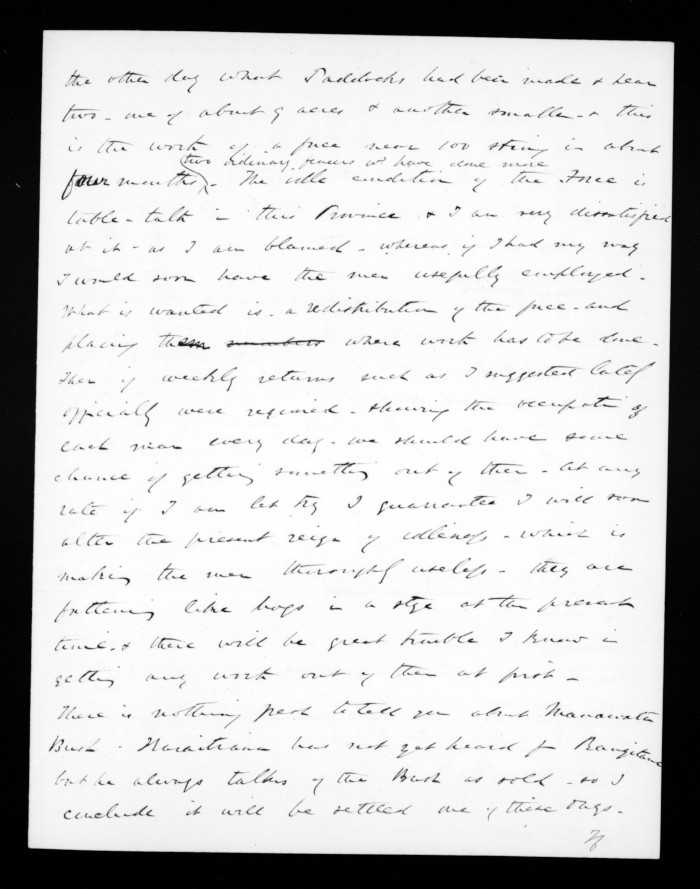 the other day what Paddocks had been made & hear
two - one of about 9 acres & another smaller - & this
is the work of a force near 100 strong in about
two ordinary fencers wd have done more
four months. The idle condition of the Force is
table-talk in this Province & I am very dissatisfied
at it - as I am blamed - whereas if I had my way
I would soon have the men usefully employed -
What is wanted is a redistribution of the force - and
placing them members where work has to be done -
Then if weekly returns such as I suggested lately
officially were required - shewing the occupation of
each man every day - we should have some
chance of getting something out of them - at any
rate if I am let try I guarantee I will soon
alter the present reign of idleness - which is
making the men thoroughly useless - they are
fattening like hogs in a stye at the present
time - & there will be great trouble I know in
getting any work out of them at first -
There is nothing fresh to tell you about Manawatu
Bush - Huraitiana has not yet heard fr Rangitane
but he always talks of the Bush as sold - so I
conclude it will be settled one of these days -